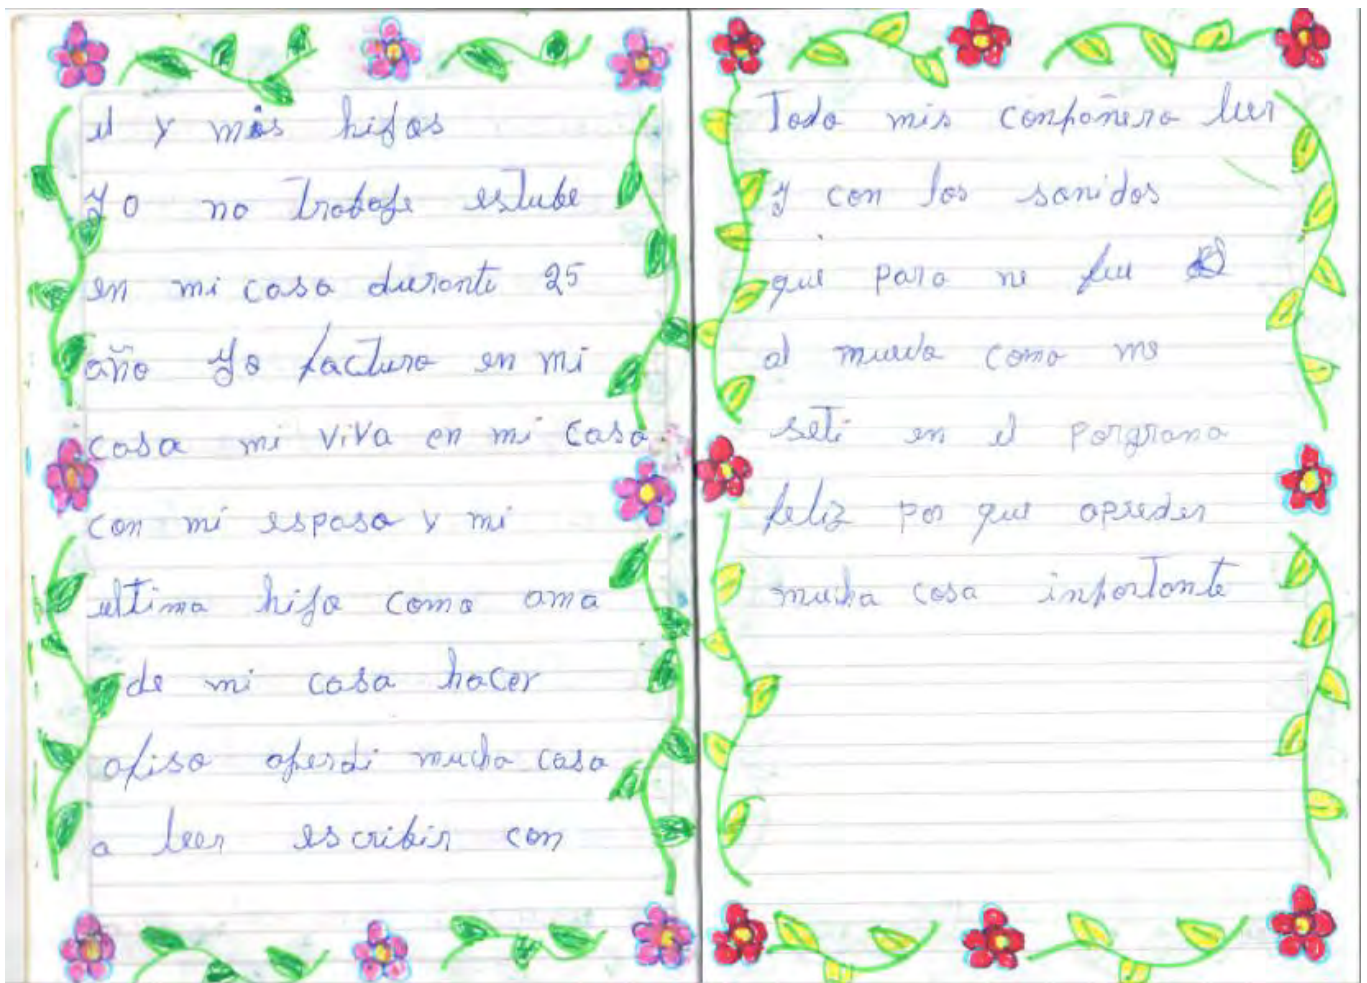 el y mis hijos
yo no trabaje estube
en mi casa durante 25
año yo factura en mi
casa mi viva en mi casa
con mi esposo y mi
ultima hija como ama
de mi casa hacer
aperdi mucha casa
a leer escribir con
Todo mis conpañera leer
y con los sonidos
que para ne fue
al mueva como me
seti en el porgrama
feliz por que apreder
mucha cosa inportante